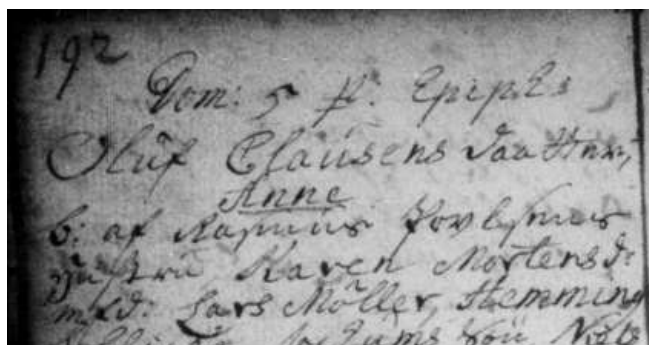 192
Dom: 5 p. Epiph:
Oluf Clausens daatter,
Anne
b: af Rasmus Povlsens
Hustru Karen Mortens d:
m: d: Lars Möller, Hemming